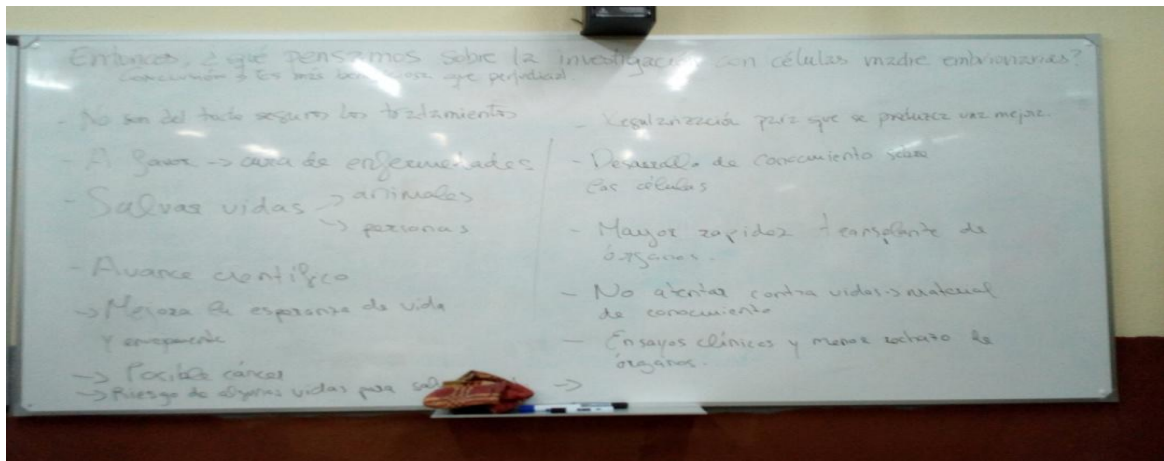 Entonces, ¿qué pensamos sobre la investigación con células madre embrionarias?
Conclusión más beneficiosa que perjudicial.
- No son del todo seguros los tratamientos
- A favor → cura de enfermedades
- Salvar vidas → animales
→ personas
- Avance científico
→ Mejora la esperanza de vida
Y
→ Posible cáncer
→ Riesgo de algunas vidas para
- Regularización para que se produzca una mejora.
- Desarrollo de conocimiento sobre
las células
- Mayor rapidez transplante de
órganos.
- No atentar contra vidas → material
de conocimiento
- Ensayos clínicos y menor rechazo de
órganos.
→